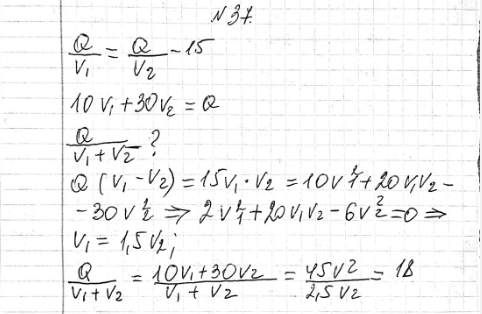 N 37.
Q/V₁ = Q/V₂ - 15
10V₁ + 30V₂ = Q
Q/(V₁ + V₂) ?
Q (V₁ - V₂) = 15V₁ · V₂ = 10V₁² + 20V₁V₂ -
- 30V₂² ⇒ 2V₁² + 20V₁V₂ - 6V₂² = 0 ⇒
V₁ = 1,5V₂;
Q/(V₁ + V₂) = (10V₁ + 30V₂)/(V₁ + V₂) = 45V2/2,5V₂ = 18